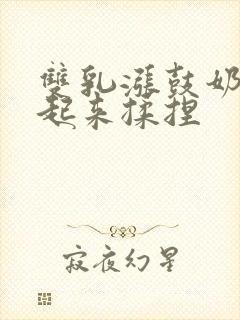 雙乳漲鼓奶
起来揉捏
寂夜幻星